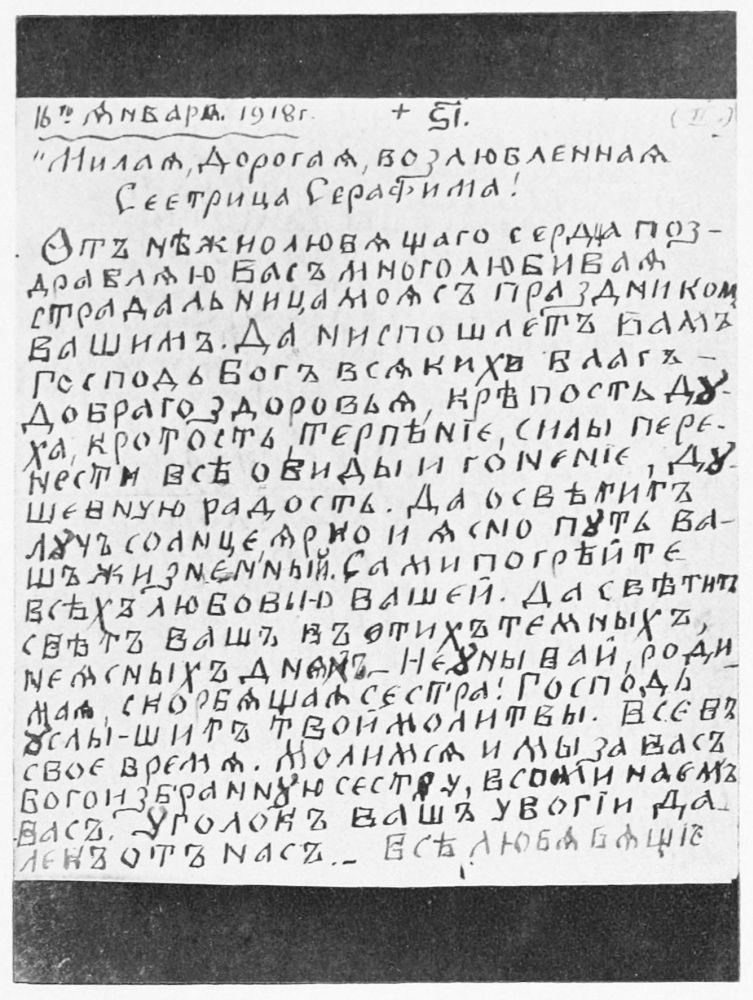 16го Января. 1918г. + Ѕ҃І. (II.)
"Милая, Дорогая, возлюбленная
Сестрица Серафима!
Отъ нѣжнолюбящаго сердца поз-
дравляю Васъ многолюбивая
страдальница моя съ праздником
Вашимъ. Да ниспошлетъ Вамъ
Господь Богъ всякихъ благъ –
Добраго здоровья, крѣпость Дꙋ-
ха, кротость, терпѣніе, силы пере-
нести всѣ обиды и гоненіе, Дꙋ-
шевную радость. Да освѣтитъ
лꙋчъ солнце, ярко и ясно пꙋть ва-
шъ жизненный. Сами погрѣйте
всѣхъ любовью вашей. Да свѣтитъ
свѣтъ вашъ въ этихъ темныхъ,
неясныхъ дняхъ – Неꙋнывай, роди
мая, скорбящая сестра! Господь
ꙋслы-шитъ твои молитвы. Все въ
свое время. Молимся и мы за васъ
богоизбраннꙋю сестрꙋ, вспоминаемъ
васъ. Уголокъ вашъ убогіи да-
лекъ отъ насъ. – Всѣ любящіе